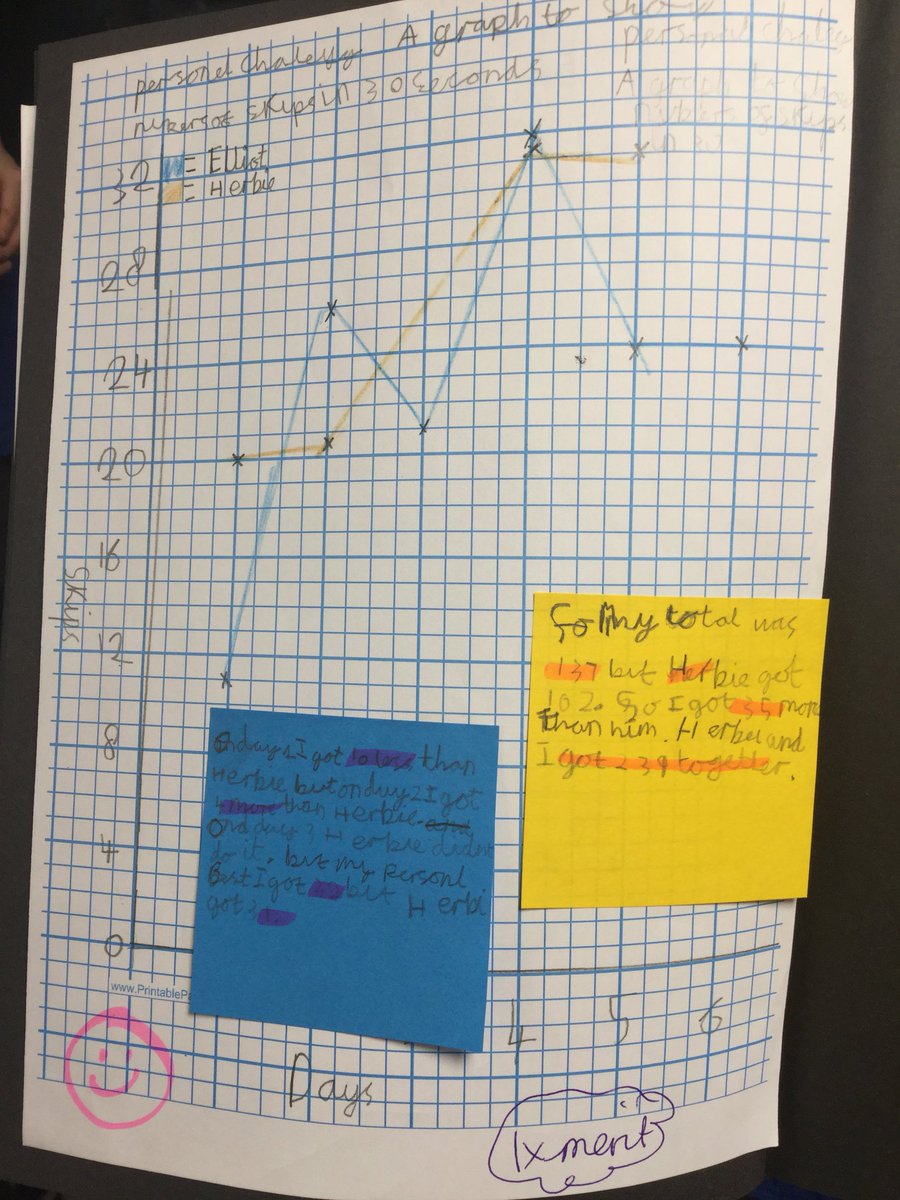 personel Chalengy A graph to show
nubers of skips in 30 seconds
personal challeng
A graph to show
numbers of skips
in 30
32
= Elliot
= Herbie
28
24
20
16
Skips
12
8
4
0
So My total was
137 but Herbie got
102. So I got 35 more
than him. Herbei and
I got 239 togetter.
On day 1 I got 10 less than
Herbie but on day 2 I got
4 more than Herbie. and
On day 3 Herbie didn't
do it. but my Personl
Best I got but Herbi
got 31.
www.PrintablePa
4 5 6
Days
1x merit